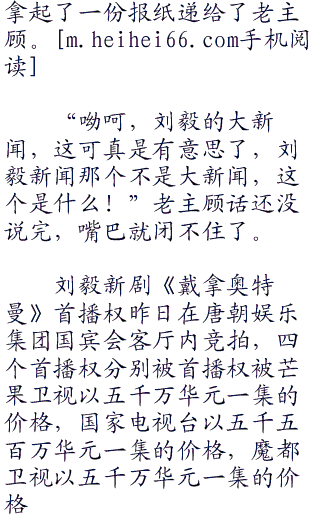 拿起了一份报纸递给了老主
顾。[m.heihei66.com手机阅
读]
“呦呵，刘毅的大新
闻，这可真是有意思了，刘
毅新闻那个不是大新闻，这
个是什么！”老主顾话还没
说完，嘴巴就闭不住了。
刘毅新剧《戴拿奥特
曼》首播权昨日在唐朝娱乐
集团国宾会客厅内竞拍，四
个首播权分别被首播权被芒
果卫视以五千万华元一集的
价格，国家电视台以五千五
百万华元一集的价格，魔都
卫视以五千万华元一集的价
格